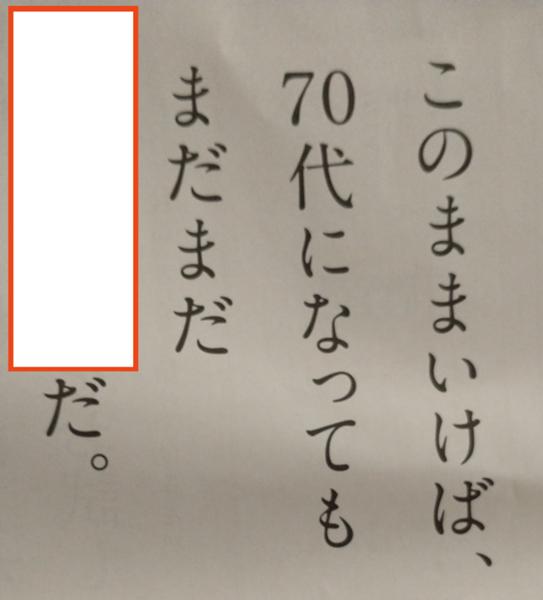 このままいけば、
70代になっても
まだまだ
だ。